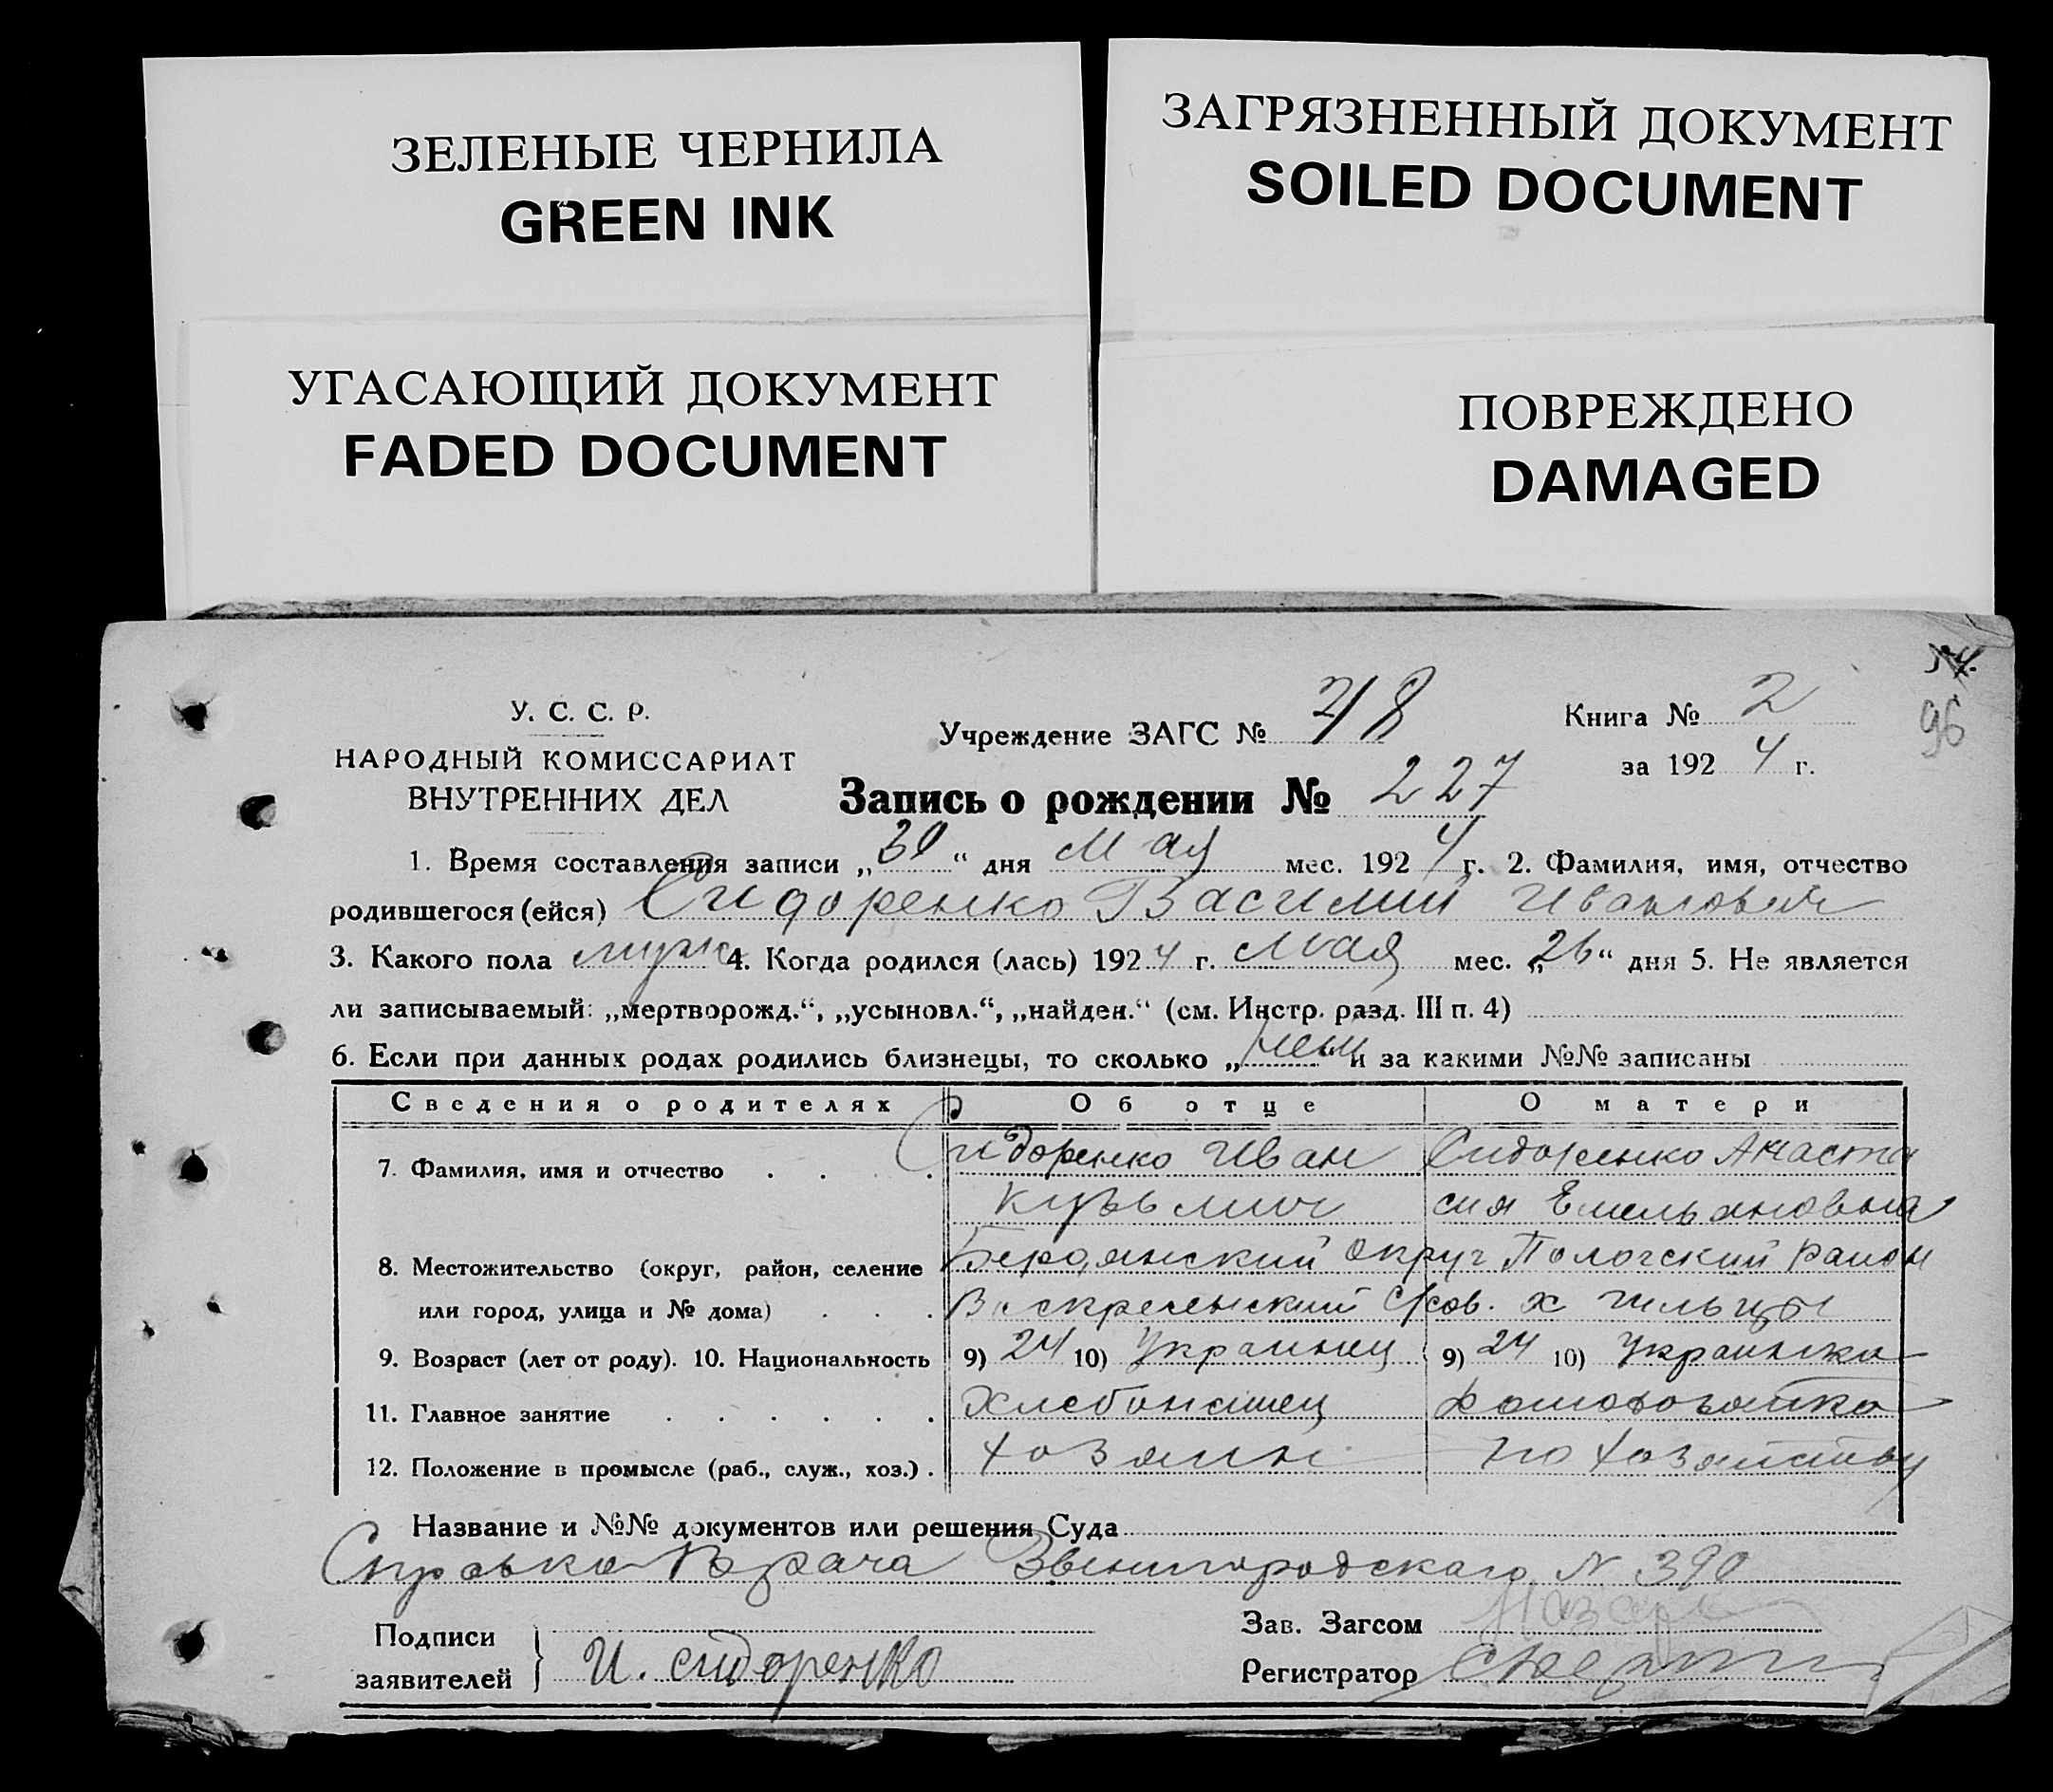 ЗЕЛЕНЫЕ ЧЕРНИЛА
GREEN INK
ЗАГРЯЗНЕННЫЙ ДОКУМЕНТ
SOILED DOCUMENT
УГАСАЮЩИЙ ДОКУМЕНТ
FADED DOCUMENT
ПОВРЕЖДЕНО
DAMAGED
96
У. С. С. Р.
НАРОДНЫЙ КОМИССАРИАТ
ВНУТРЕННИХ ДЕЛ
Учреждение ЗАГС №
Книга № 2
за 1924 г.
Запись о рождении № 227
1. Время составления записи „30“ дня Мая мес. 1924 г. 2. Фамилия, имя, отчество
родившегося (ейся) Сидоренко Василий Иванович
3. Какого пола муж 4. Когда родился (лась) 1924 г. Мая мес. „26“ дня 5. Не является
ли записываемый: „мертворожд.“, „усыновл.“, „найден.“ (см. Инстр. разд. III п. 4)
6. Если при данных родах родились близнецы, то сколько „нет“ и за какими №№ записаны
Сведения о родителях Об отце О матери
7. Фамилия, имя и отчество . . . . Сидоренко Иван Сидоренко Анаста
Кузьмич сия Емельяновна
8. Местожительство (округ, район, селение Бердянский округ Пологский район
или город, улица и № дома) . . . Воскресенский с/сов. х
9. Возраст (лет от роду). 10. Национальность 9) 24 10) Украинец 9) 24 10) Украинка
11. Главное занятие . . . . . . Хлебопашец домохозяйка
12. Положение в промысле (раб., служ., хоз.) . хозяин по хозяйству
Название и №№ документов или решения Суда
Справка Врача Звенигородскаго N 390
Подписи
заявителей } И. Сидоренко
Зав. Загсом
Регистратор